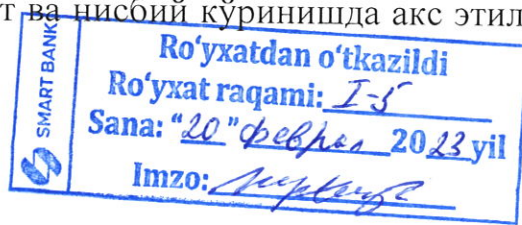 т ва нисбий кўринишда акс этил
SMART BANK
Ro'yxatdan o'tkazildi
Ro'yxat raqami: I-5
Sana: "20" феврал 2023 yil
Imzo: